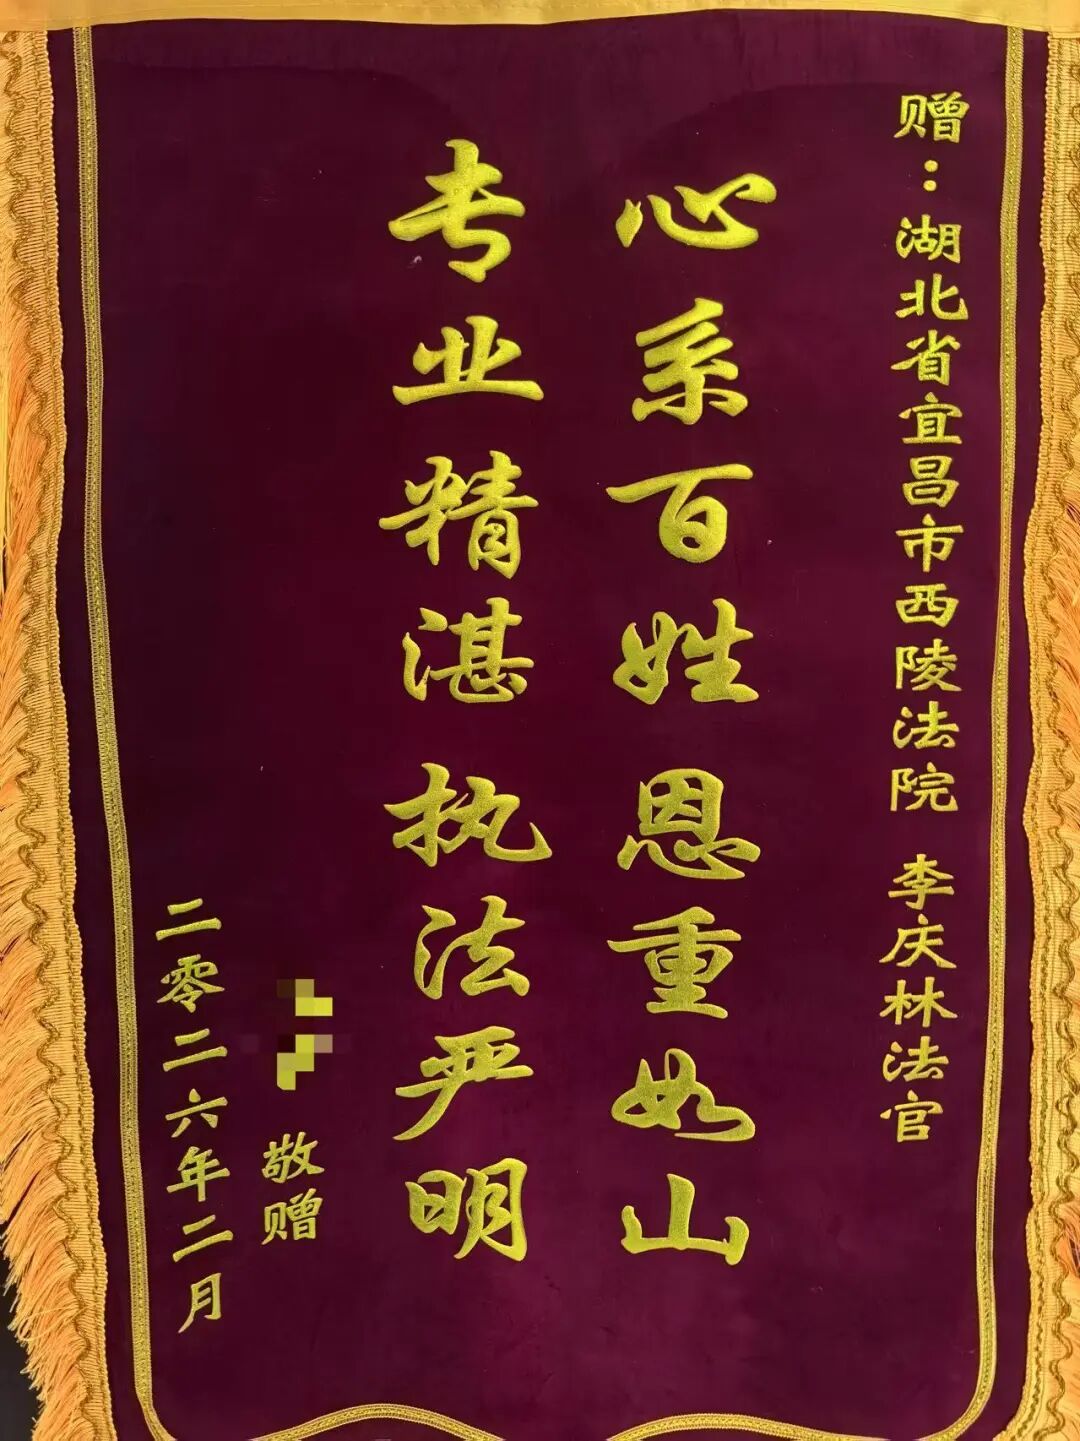 赠：湖北省宜昌市西陵法院 李庆林法官
心系百姓恩重如山
专业精湛执法严明
敬赠
二零二六年二月